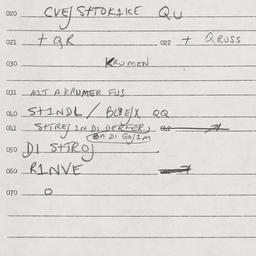 020 CVEJ S+TOK1KE QU
021 + QR 022 + QRUSS
030 KRUMEN
031 A KRUMER FUS
040 S+1NDL / QQ
041 S+TREJ 1N DI
BA DI GO/1M
050 DI S+TROJ
060 R1NVE
070 O